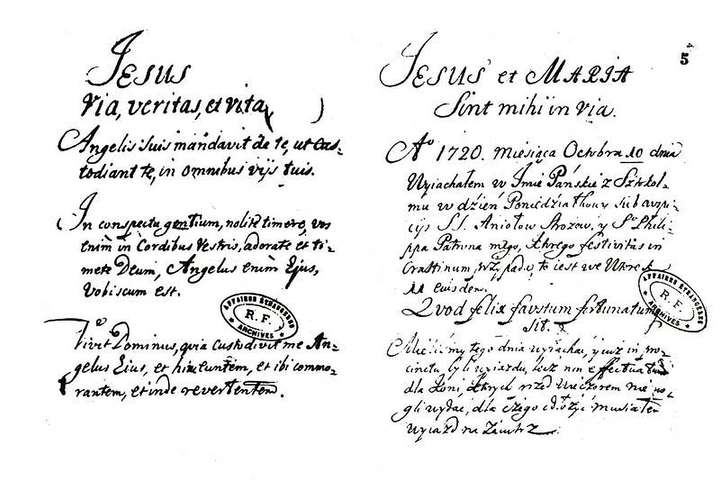 Jesus
Via, veritas, et vita
Angelis suis mandavit de te, ut Cus-
todiant te, in omnibus vijs tuis.
In conspectu gentium, nolite timere, vos
enim in Cordibus Vestris, adorate et ti-
mete Deum, Angelus enim Ejus,
Vobiscum est.
Vivit Dominus, quia Custodivit me An-
gelus Eius, et hinc euntem, et ibi commo-
rantem, et inde revertentem.
AFFAIRES ETRANGERES
R.F.
ARCHIVES
5
JESUS et MARIA
Sint mihi in via.
Aº 1720. Miesiąca Octobra 10 dnia
Wyiachałem w Imie Pańskie z Sztokol-
mu w dzień Poniedziałkowy sub auspi-
cijs S.S. Aniołow Strozow, y Sº Phili-
ppa Patrona mego, ktorego festivitas in
Crastinum, przypada to iest we Wtorek
11 eiusdem.
Quod felix faustum fortunatum
sit.
tego dnia wyiachac, y iusz in pro-
cinctu byli wyiazdu, lecz non effectuatum
dla koni, ktorych przed Wieczorem nie mo-
gli wydac, dla czego odłożyć musiałem
wyiazd na Iutrz
AFFAIRES ETRANGERES
R.F.
ARCHIVES